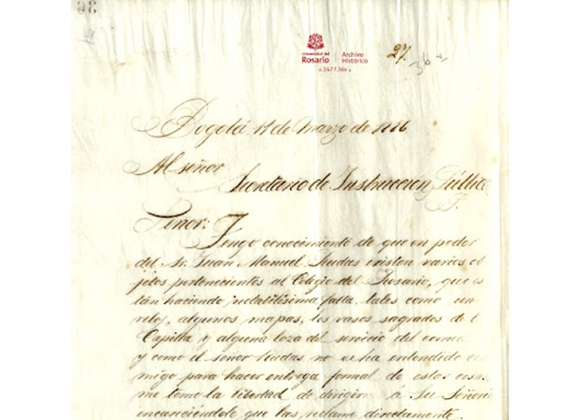 Universidad del
Rosario
Archivo
Histórico
27.
36
Bogotá 17 de Marzo de 1886
Al señor
Secretario de Instruccion Públic
Señor:
Tengo conocimiento de que en poder
del Sr. Juan Manuel Rudas existen varios ob
jetos pertenecientes al Colegio del Rosario, que es
tán haciendo notabilísima falta, tales como un
reloj, algunos mapas, los vasos sagrados de l
Capilla y alguna loza del servicio del come
y como el Señor Rudas no se ha entendido co
migo para hacer entrega formal de estos
me tomo la libertad de dirigirme á Su Señorí
incándole que las reclame directamente